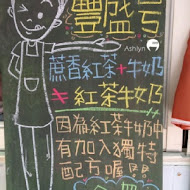 豐盛号
Ashlyn
蔗香紅茶+牛奶
≠紅茶牛奶
因為紅茶牛奶中
有加入獨特
配方喔!!